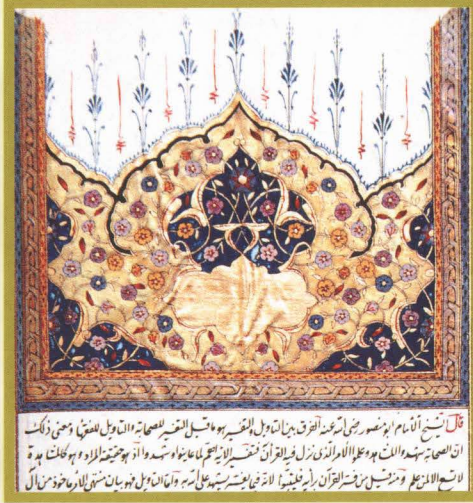 قال الشيخ الامام ابو منصور رضي الله عنه الفرق بين التاويل والتفسير هو ما قيل التفسير للصحابة والتاويل للفقهاء ومعنى ذلك
ان الصحابة شهدوا المشاهد وعلموا الامر الذي نزل فيه القرآن فتفسير الاية اهم لما عاينوا وشهدوا اذ هو حقيقة المراد وهو كالمشاهدة
لا تسمع الا لمن علم ومنه قيل من فسر القرآن برأيه فليتبوأ لانه فيما يفسر يشهد على الله به واما التاويل فهو بيان منتهى الامر مأخوذ من آل